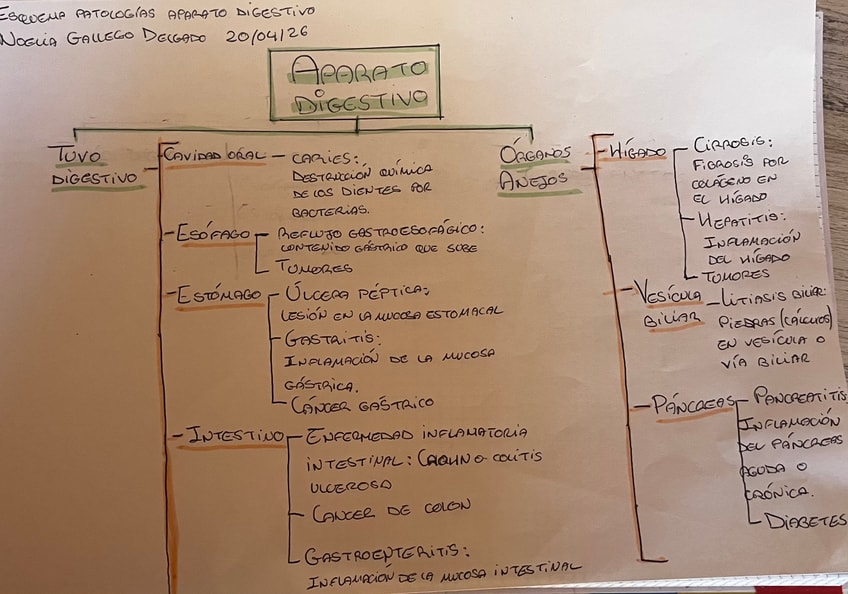 ESQUEMA PATOLOGÍAS APARATO DIGESTIVO
NOELIA GALLEGO DELGADO 20/04/26
APARATO
DIGESTIVO
TUVO
DIGESTIVO
- CAVIDAD ORAL - CARIES:
DESTRUCCIÓN QUÍMICA
DE LOS DIENTES POR
BACTERIAS.
- ESÓFAGO - REFLUJO GASTROESOFÁGICO:
CONTENIDO GÁSTRICO QUE SUBE
- TUMORES
- ESTÓMAGO - ÚLCERA PÉPTICA:
LESIÓN EN LA MUCOSA ESTOMACAL
- GASTRITIS:
INFLAMACIÓN DE LA MUCOSA
GÁSTRICA.
- CÁNCER GÁSTRICO
- INTESTINO - ENFERMEDAD INFLAMATORIA
INTESTINAL: CROHN O COLITIS
ULCEROSA
- CANCER DE COLON
- GASTROENTERITIS:
INFLAMACIÓN DE LA MUCOSA INTESTINAL
ÓRGANOS
ANEJOS
- HÍGADO - CIRROSIS:
FIBROSIS POR
COLÁGENO EN
EL HÍGADO
- HEPATITIS:
INFLAMACIÓN
DEL HÍGADO
- TUMORES
- VESÍCULA
BILIAR - LITIASIS BILIAR:
PIEDRAS (CÁLCULOS)
EN VESÍCULA O
VÍA BILIAR
- PÁNCREAS - PANCREATITIS:
INFLAMACIÓN
DEL PÁNCREAS
AGUDA O
CRÓNICA.
- DIABETES